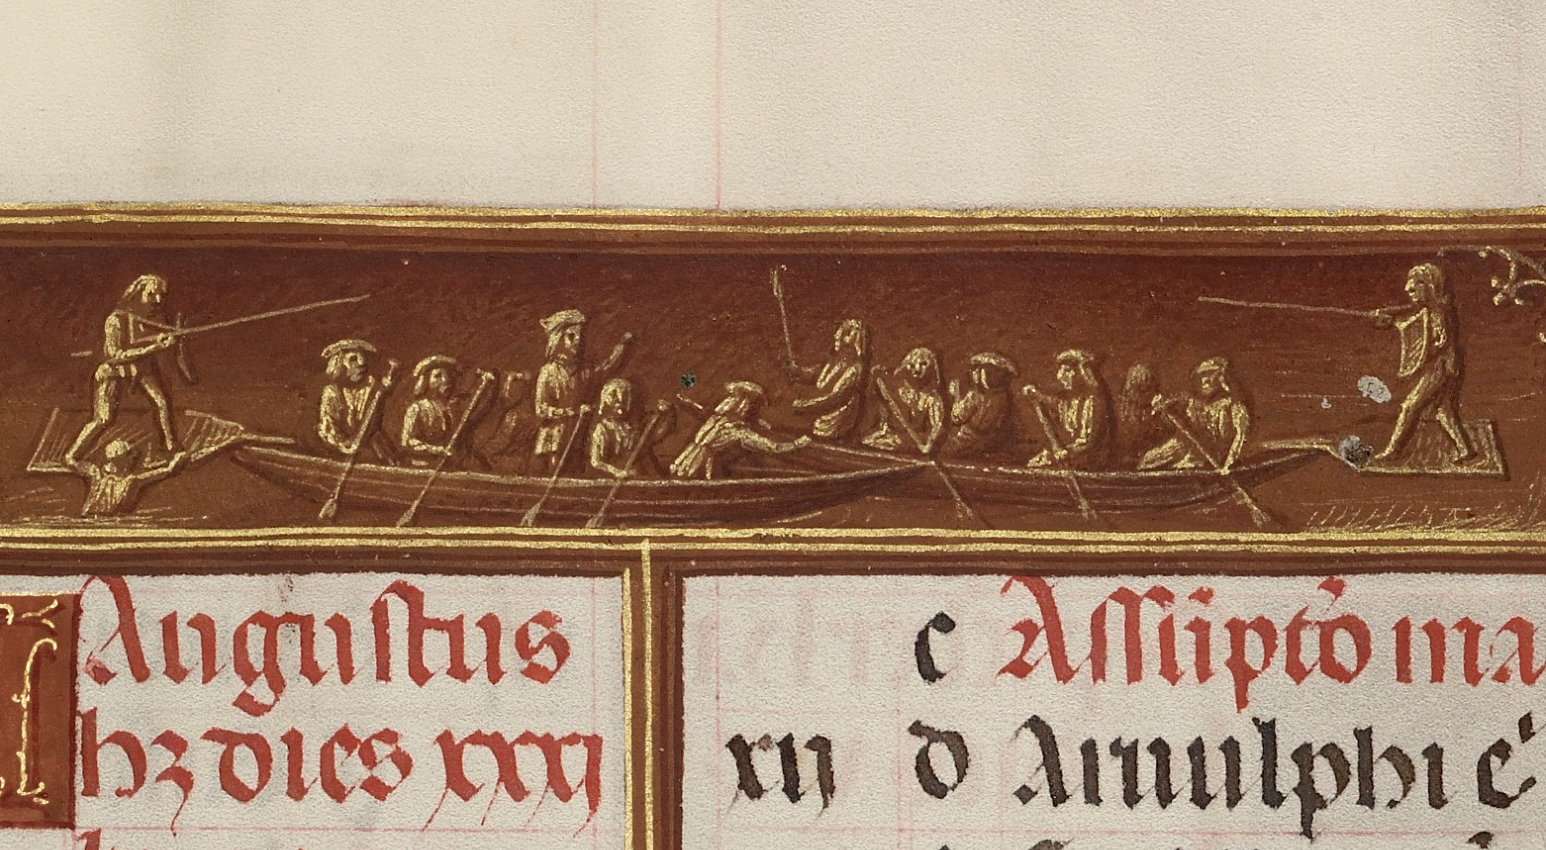 Augustus
hz dies xxxj
c Assūpto ma
xij d Arnulphi e